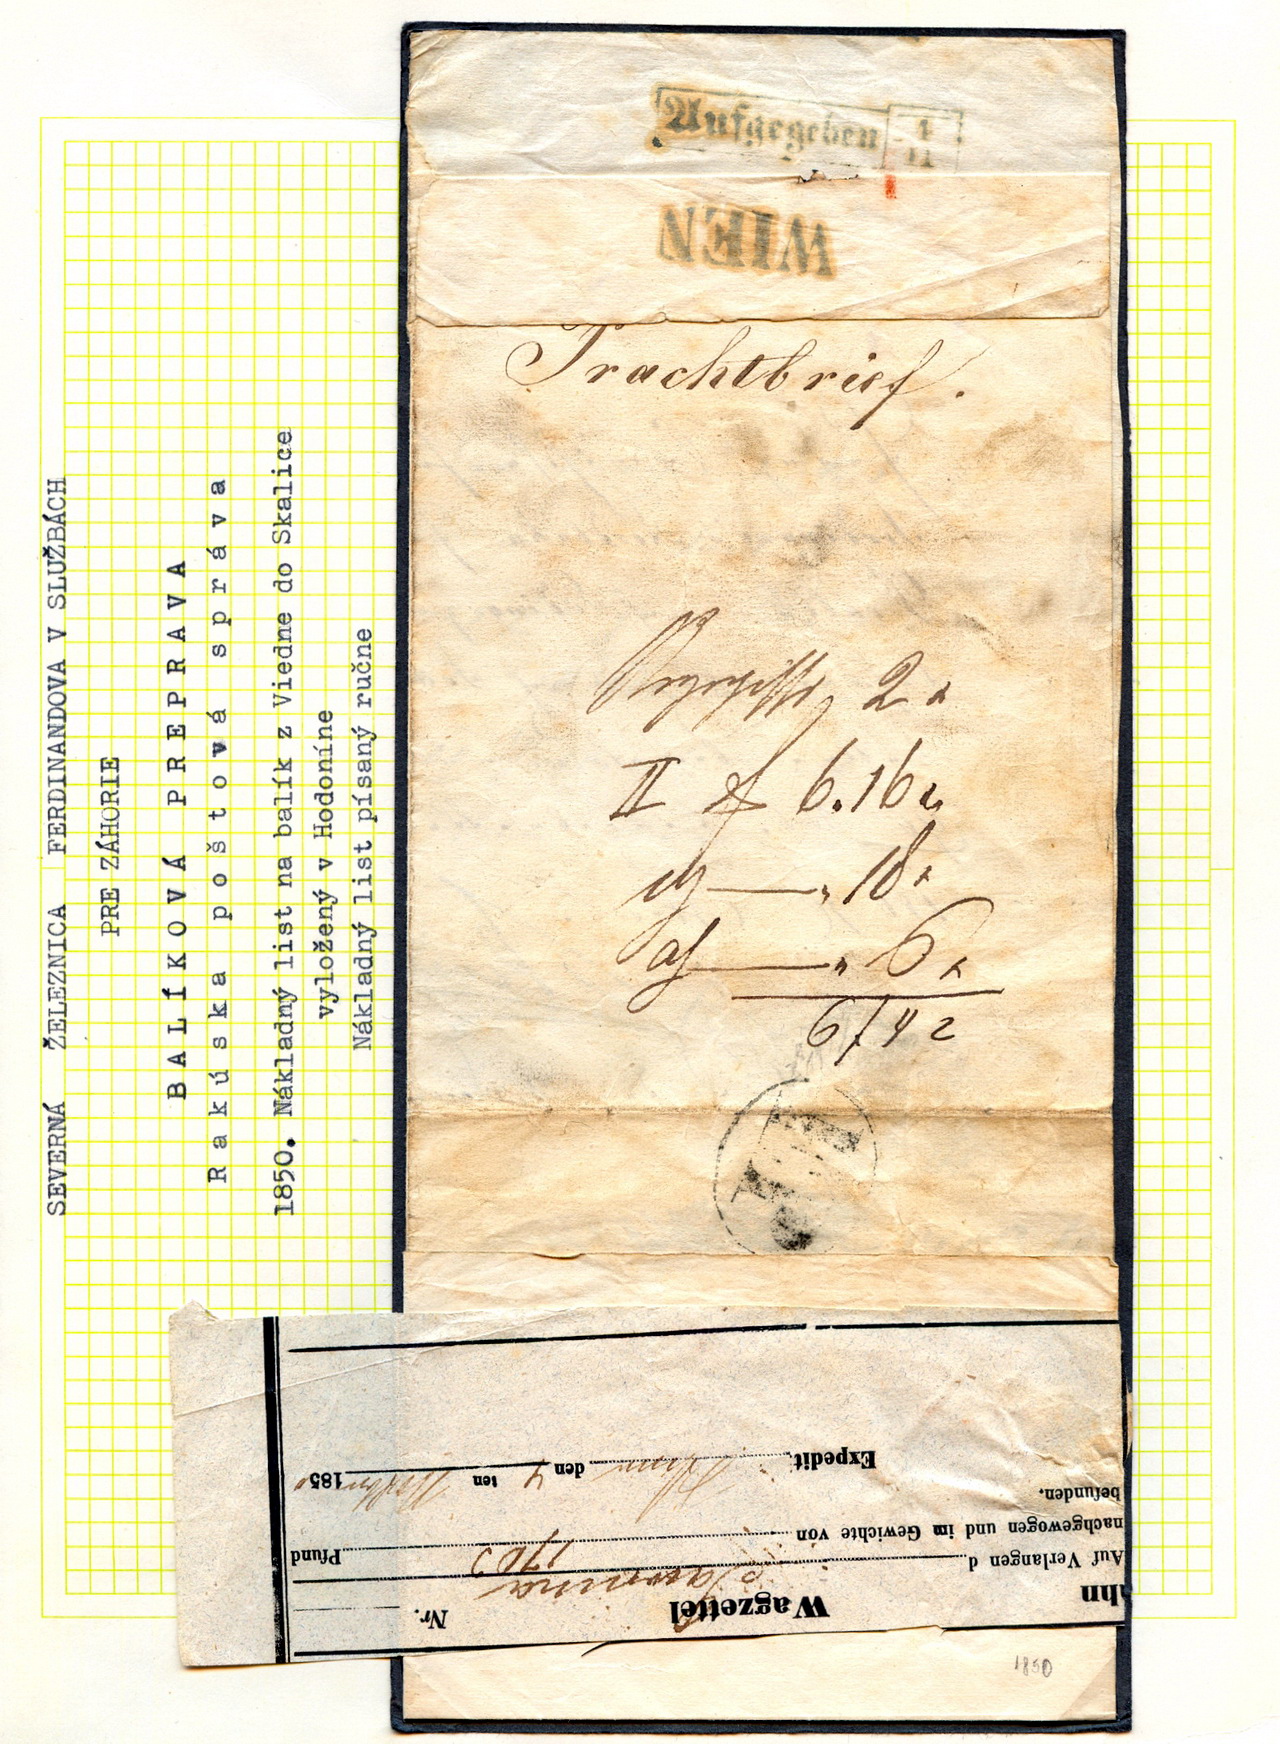 SEVERNÁ ŽELEZNICA FERDINANDOVA V SLUŽBÁCH
PRE ZÁHORIE
BALÍKOVÁ PREPRAVA
Rakúska poštová správa
1850. Nákladný list na balík z Viedne do Skalice
vyložený v Hodoníne
Nákladný list písaný ručne
Aufgegeben 1/11
WIEN
Frachtbrief.
2 x
II 6.16 x
" 18 x
" 6 x
6/42
ahn
Wagzettel
Nr.
Auf Verlangen d
Pfund
nachgewogen und im Gewichte von
1703
befunden.
den 4 ten 1850
Expedit.
1850